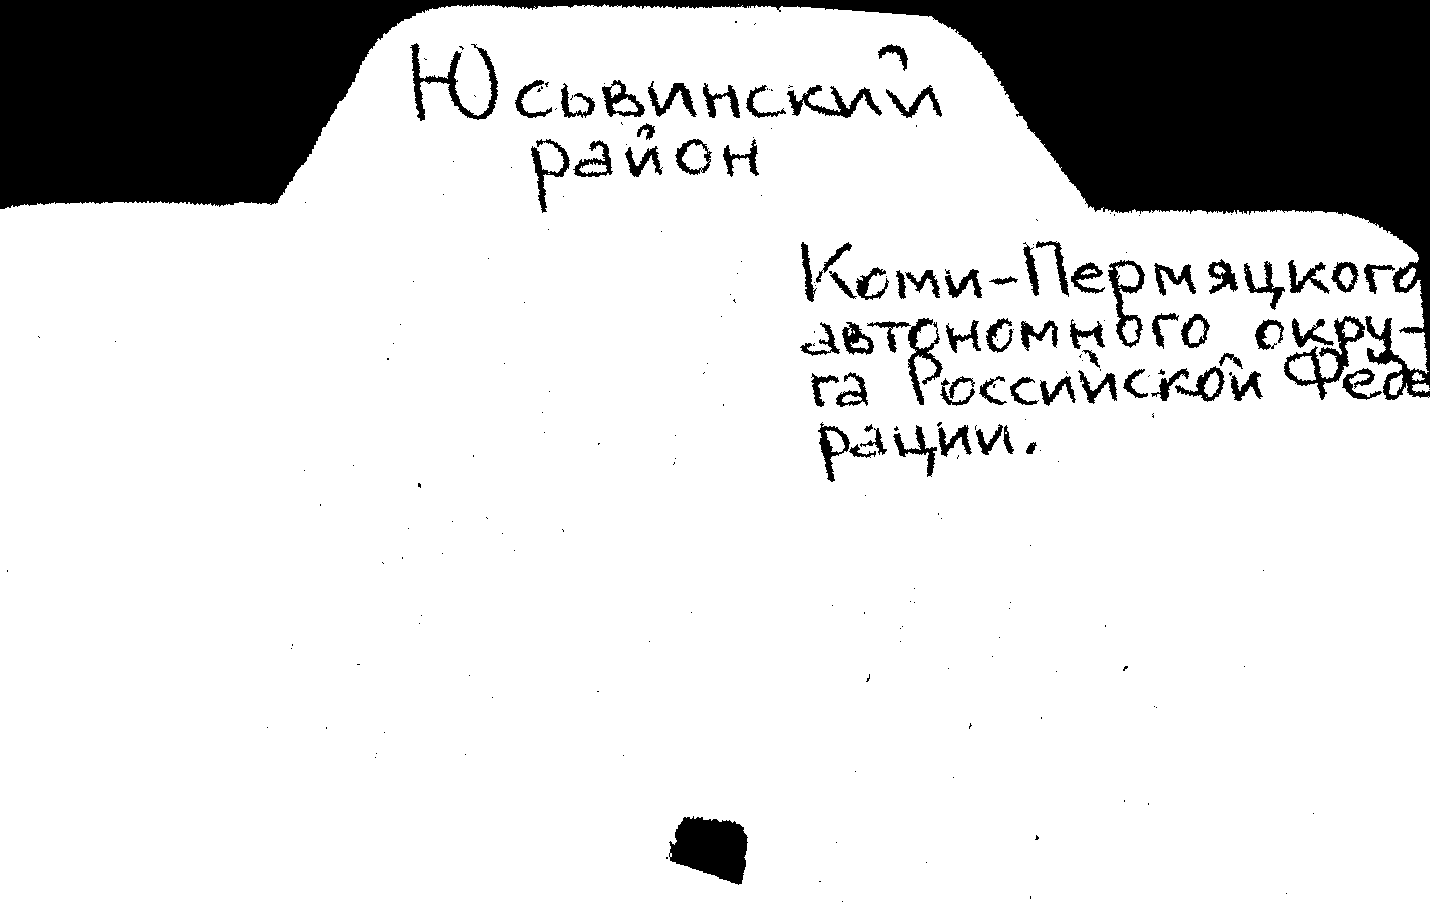 Юсьвинский
район
Коми-Пермяцкого
автономного окру-
га Российской Феде
рации.